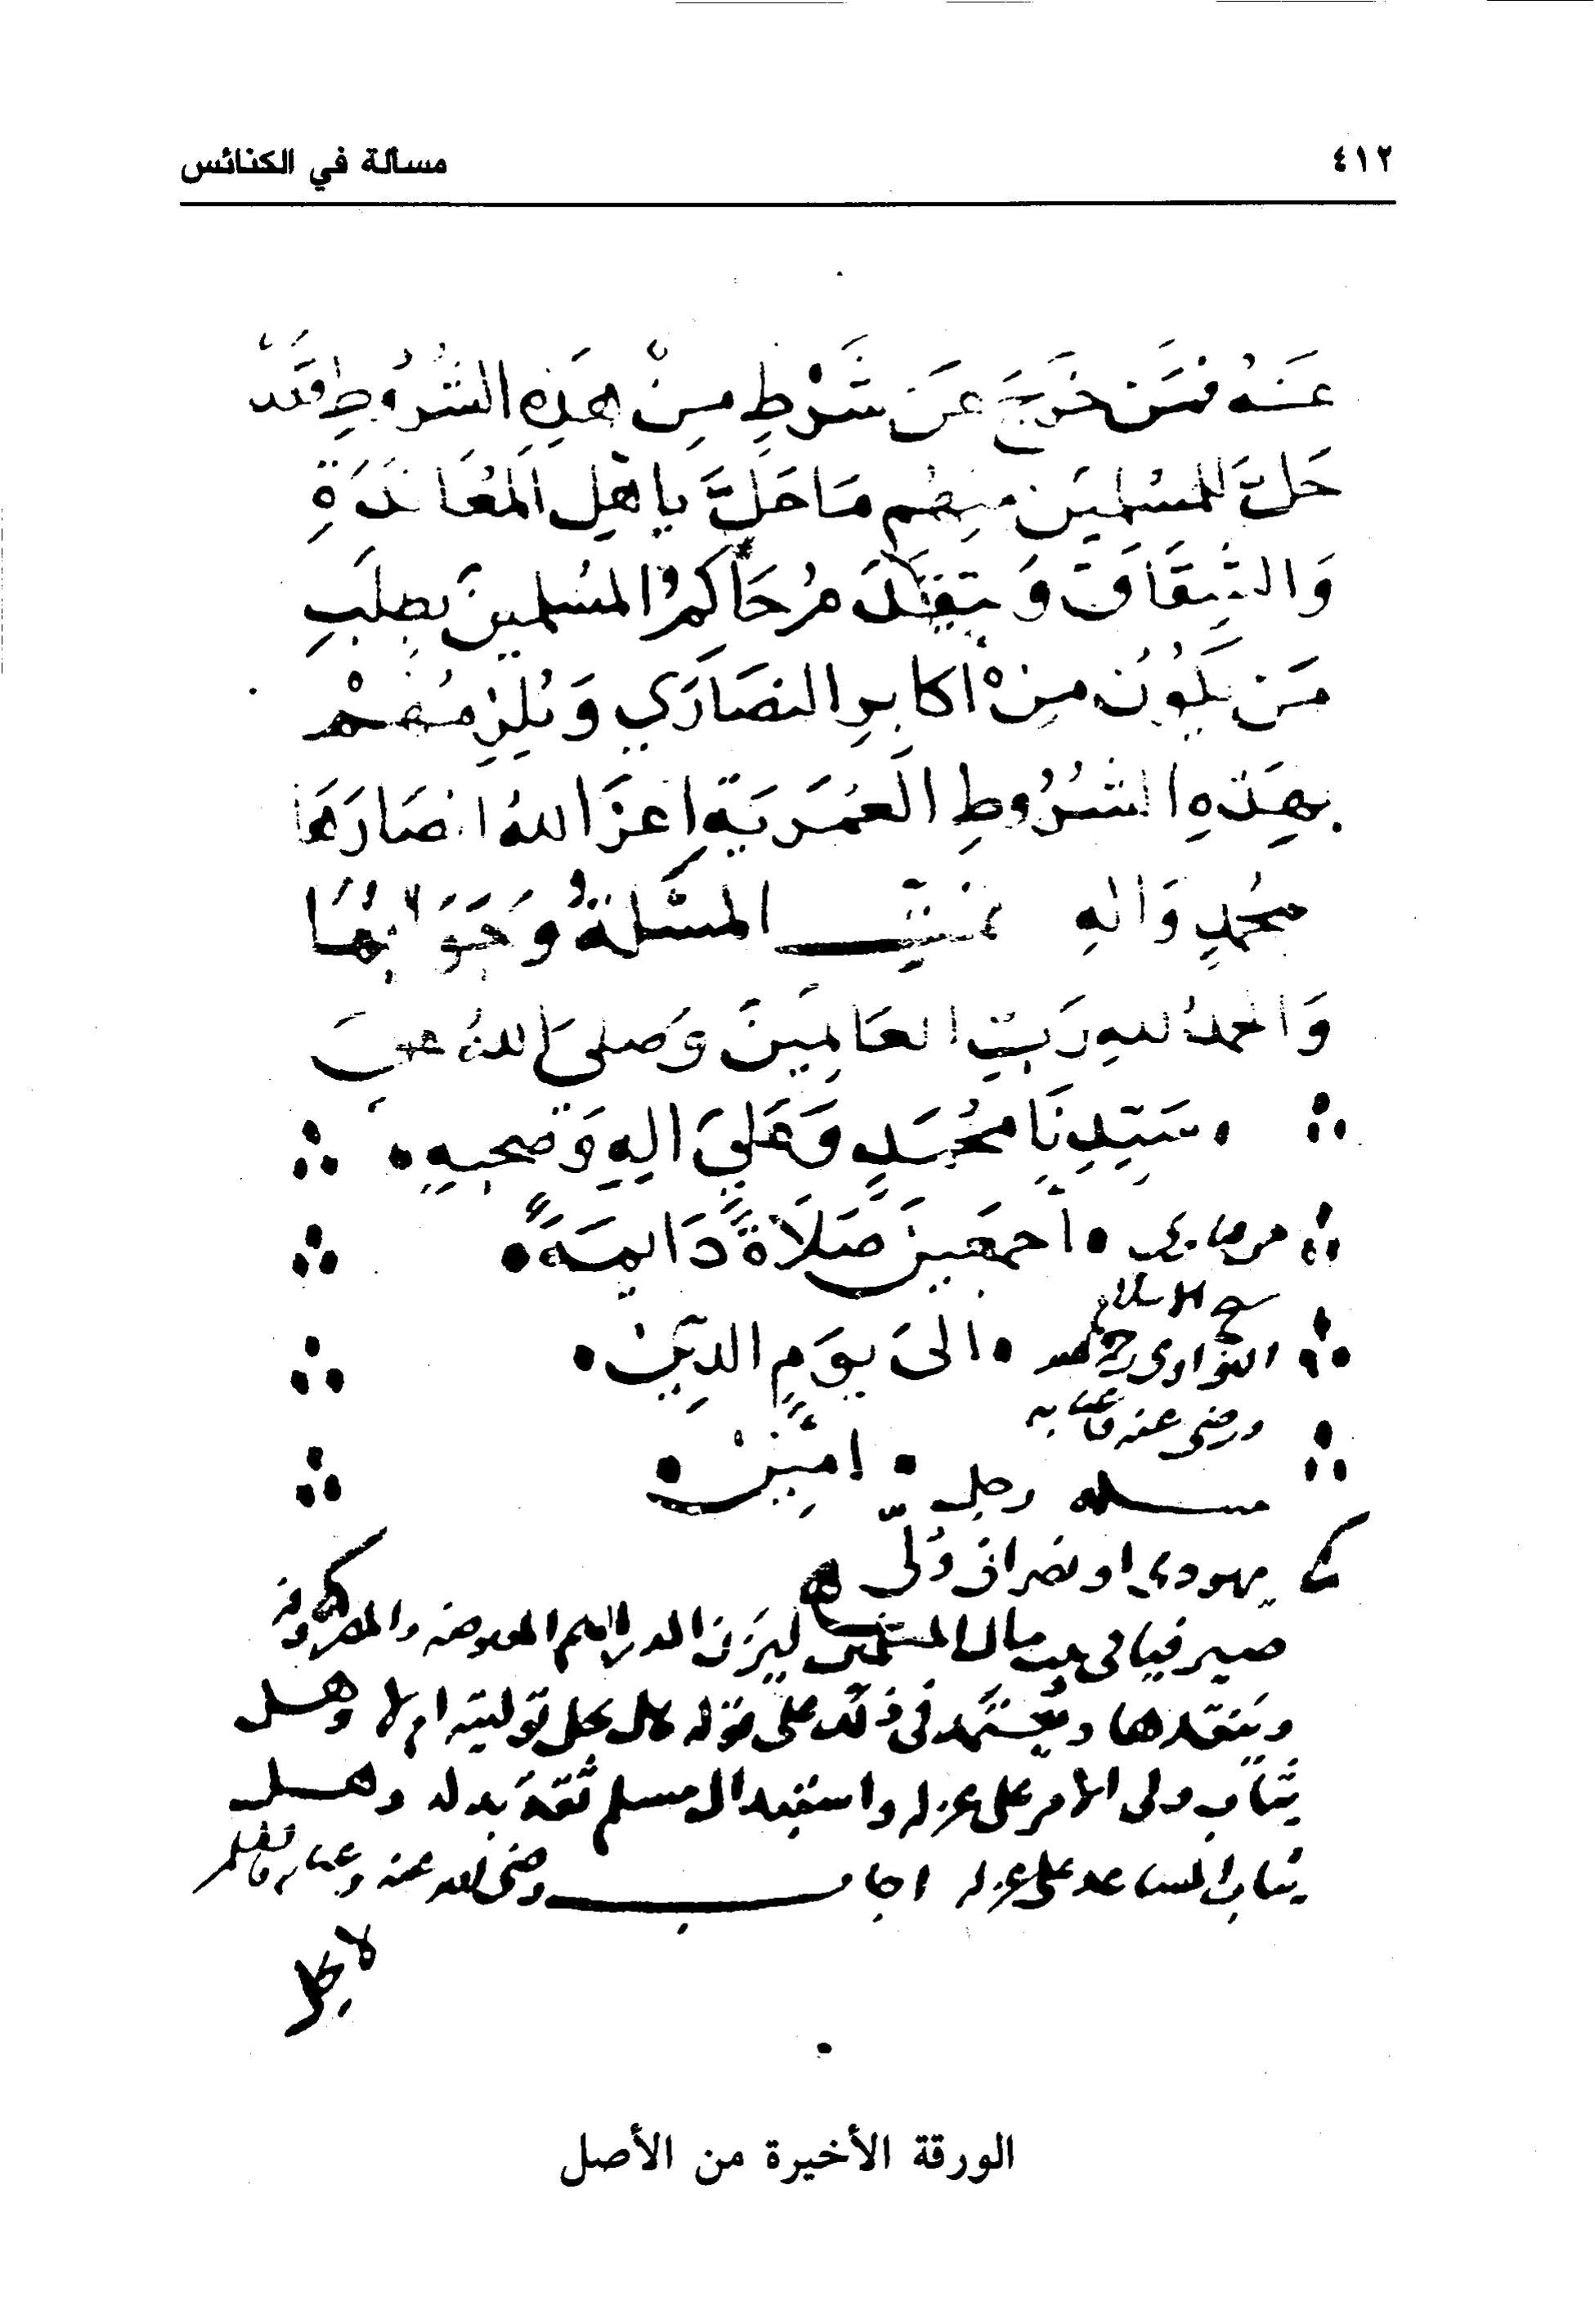 ٤١٢
مسألة في الكنائس
عَنْهُ فمَن خَرَجَ عَن شَرْطٍ مِنْ هَذِهِ الشُرُوطِ فقَدْ
حَلَّ للمسْلمِيَن مِنهُم مَا حَلَّ بِاهْلِ المُعَانَدَةِ
وَالشِقَاقَ وَيَتقَدَمُ حَاكمُ المسُلمينَ بطلَبِ
مَن يَكُونُ مِنْ اكابِرِ النصَارَي وَيُلزِمُهُمْ
بهَذِهِ الشُرُوطِ العُمَرَيَةِ اعزَ اللهُ انصَارَهَا
بمُحمدٍ وَالهِ تمت المسْئَلةُ وَجَوَابُهَا
وَالحمدُ للهِ رَبِّ العَالمِينَ وَصَلىَ اللهُ عَلي
سَيّدِنَا محُمَدٍ وَعَليَ الهِ وَصَحبِهِ
اجمعَينَ صَلَاةً دَايمَةً
من فتاوى
الىَ يَومِ الدِيِن
شيخ الاسلام
النواوى رحمه الله
ورضى عنه
امِيَنْ
مسله رجل
يهودى او نصرانى وُلّى
صيرفيا فى بيت مال المسلمين ليزن الدراهم المقبوضه والمصروفة
وينقدها ويُعتمد فى ذلك على قوله هل يحل توليته ام لا وهل
يُثاب ولى الامر على عزله واستبدال مسلم ثقة بدله وهل
يثاب المساعد على عزله اجاب رضى الله عنه
لا يحل
الورقة الأخيرة من الأصل